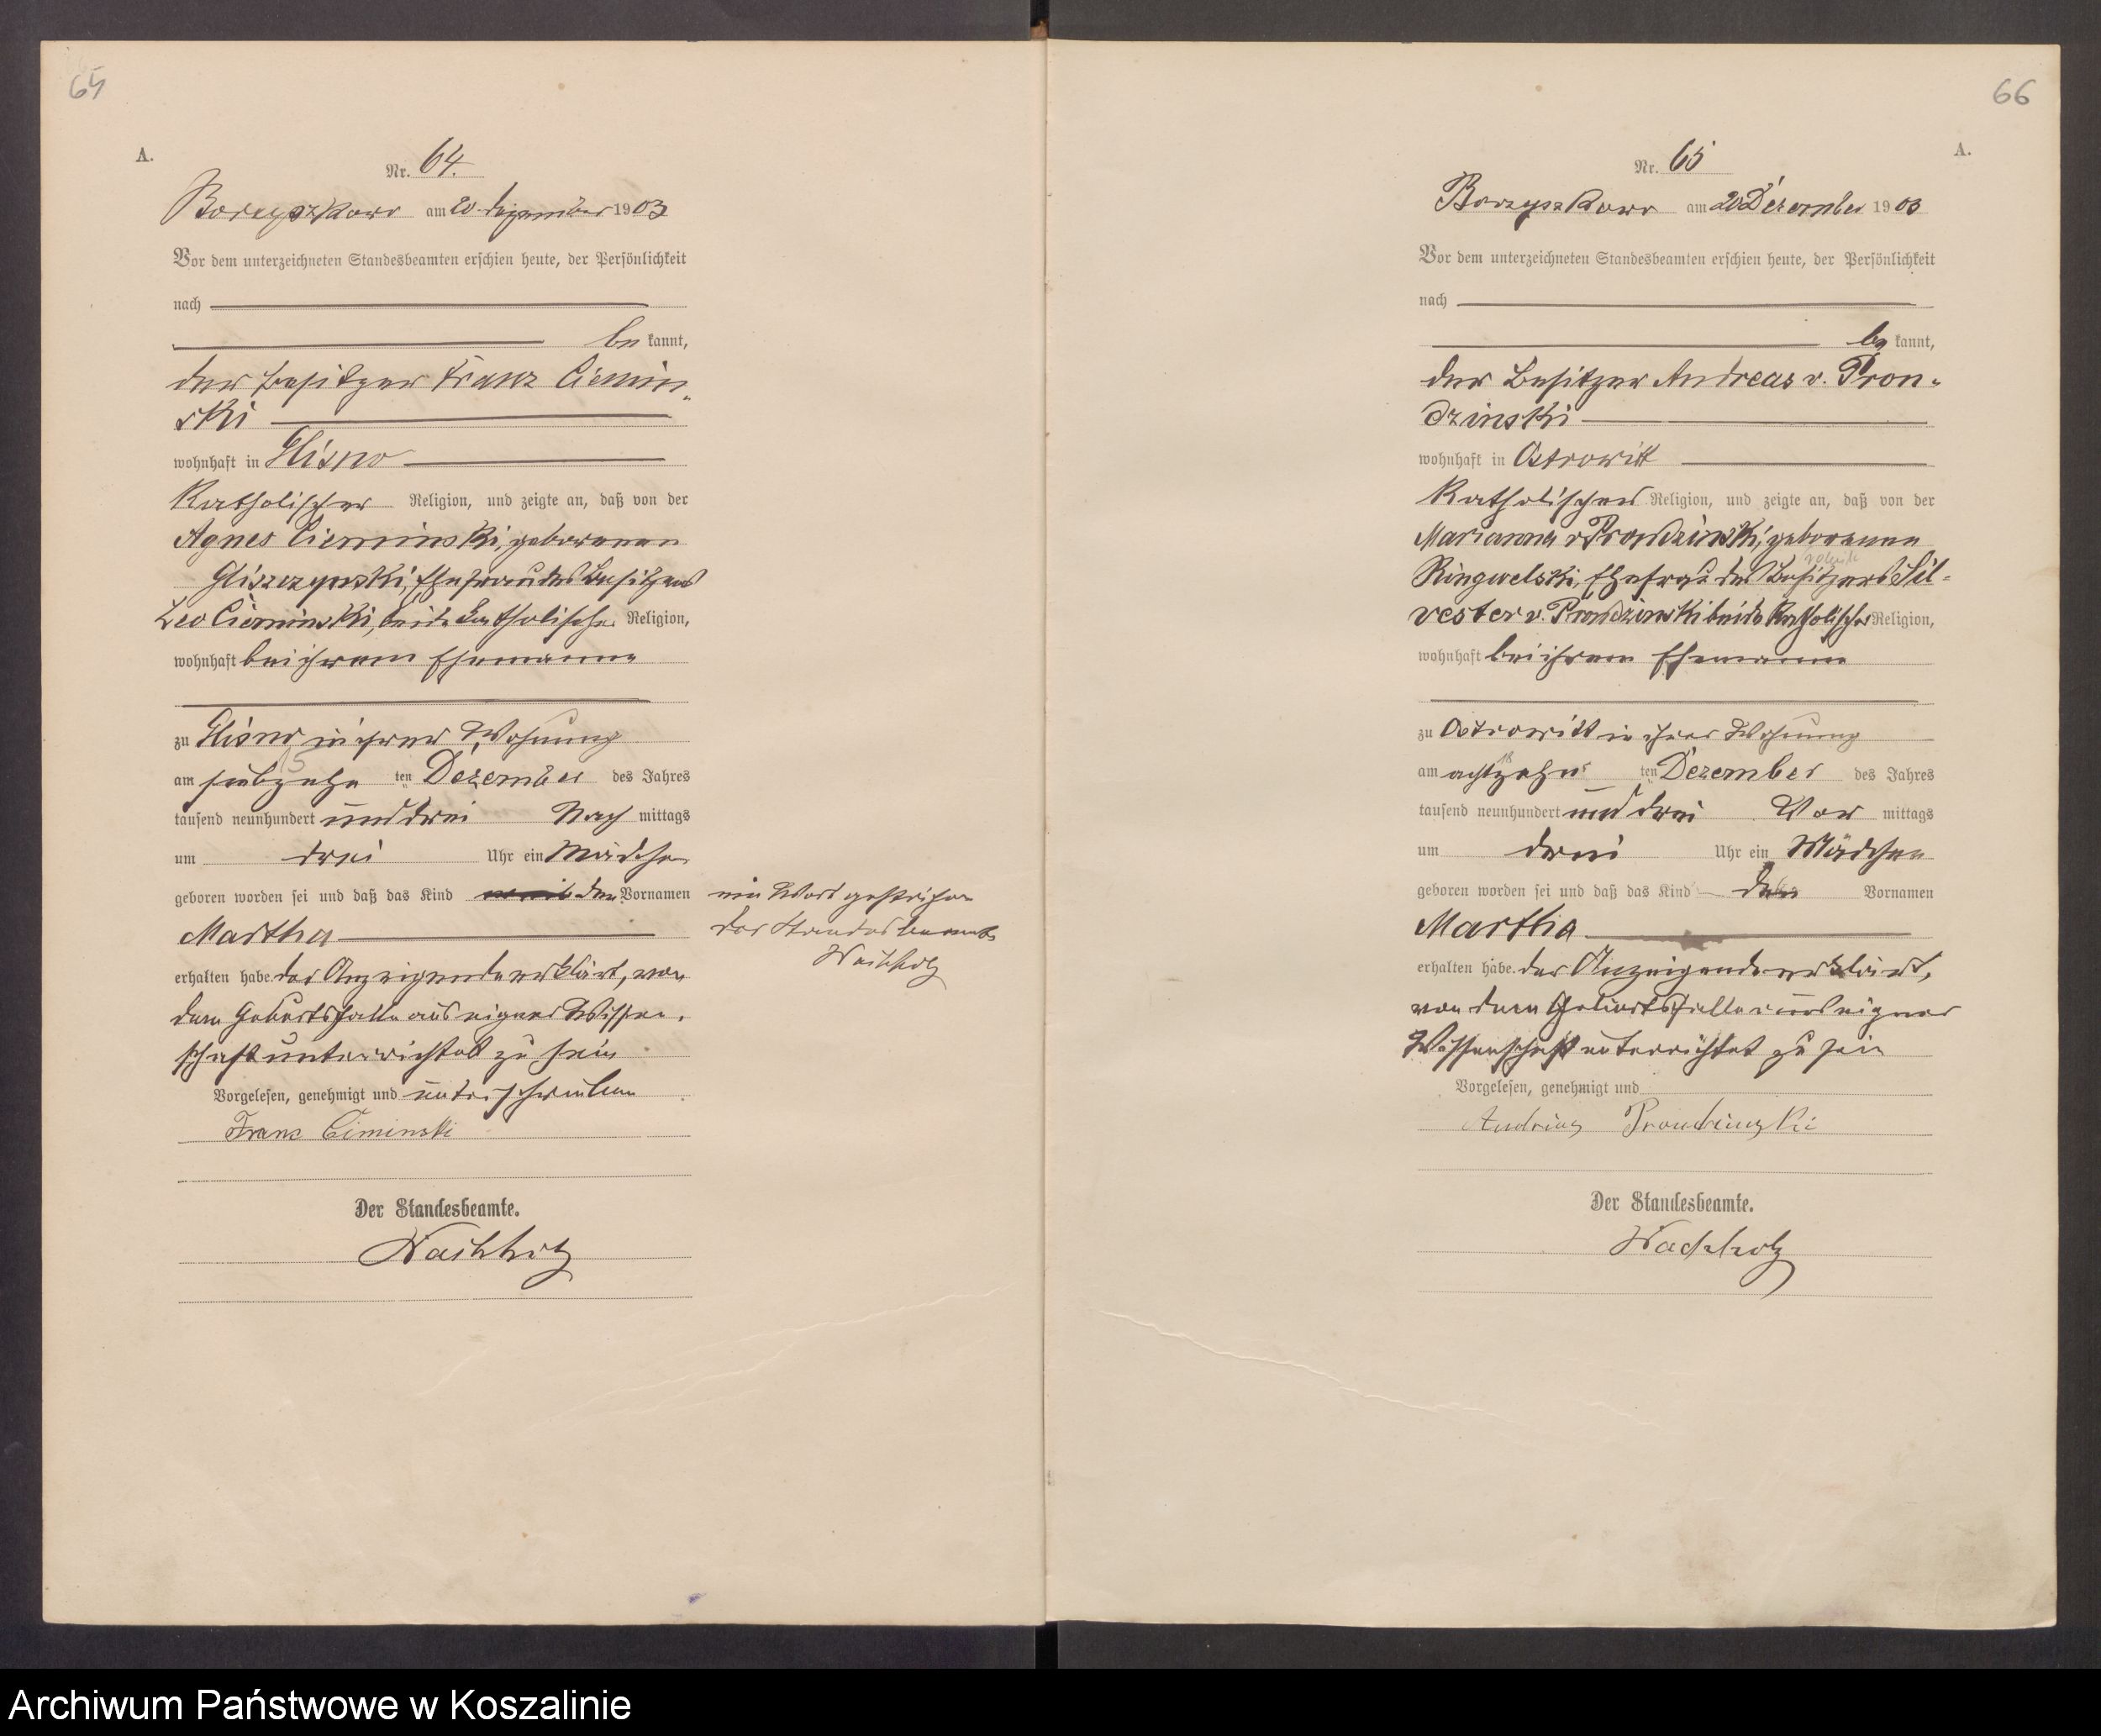 65
A.
Nr. 64.
Borzyszkowo am 20. Dezember 1903
Vor dem unterzeichneten Standesbeamten erschien heute, der Persönlichkeit
nach
be kannt,
der Besitzer Franz Ciemin-
ski
wohnhaft in Glisno
katholischer Religion, und zeigte an, daß von der
Agnes Cieminski, geborenen
Gliszczynski, Ehefrau des Besitzers
Leo Cieminski, beide katholischer Religion,
wohnhaft bei ihrem Ehemanne
zu Glisno in ihrer Wohnung
am ten Dezember des Jahres
tausend neunhundert und drei Nach mittags
um drei Uhr ein Mädchen
geboren worden sei und daß das Kind den Vornamen
Martha
erhalten habe. der Anzeigende erklärt, von
dem Geburtsfalle aus eigner Wissen-
schaft unterrichtet zu sein
Vorgelesen, genehmigt und unterschrieben
Franz Ciminski
Der Standesbeamte.
Wachholz
ein Wort gestrichen
der Standesbeamte
Wachholz
66
A.
Nr. 65
Borzyszkowo am 20 Dezember 1903
Vor dem unterzeichneten Standesbeamten erschien heute, der Persönlichkeit
nach
be kannt,
der Besitzer Andreas v. Pron-
dzinski
wohnhaft in Ostrowitt
katholischer Religion, und zeigte an, daß von der
Marianna v Prondzinski, geborenen
Ringwelski, Ehefrau des Besitzers Sil-
vester v. Prondzinski beide katholischer Religion,
wohnhaft bei ihrem Ehemanne
zu Ostrowitt in ihrer Wohnung
am achtzehn ten Dezember des Jahres
tausend neunhundert und drei Vor mittags
um drei Uhr ein Mädchen
geboren worden sei und daß das Kind den Vornamen
Martha
erhalten habe. der Anzeigende erklärt,
von dem Geburtsfalle aus eigner
Wissenschaft unterrichtet zu sein
Vorgelesen, genehmigt und
Andreas Prondzinski
Der Standesbeamte.
Wachholz
Archiwum Państwowe w Koszalinie